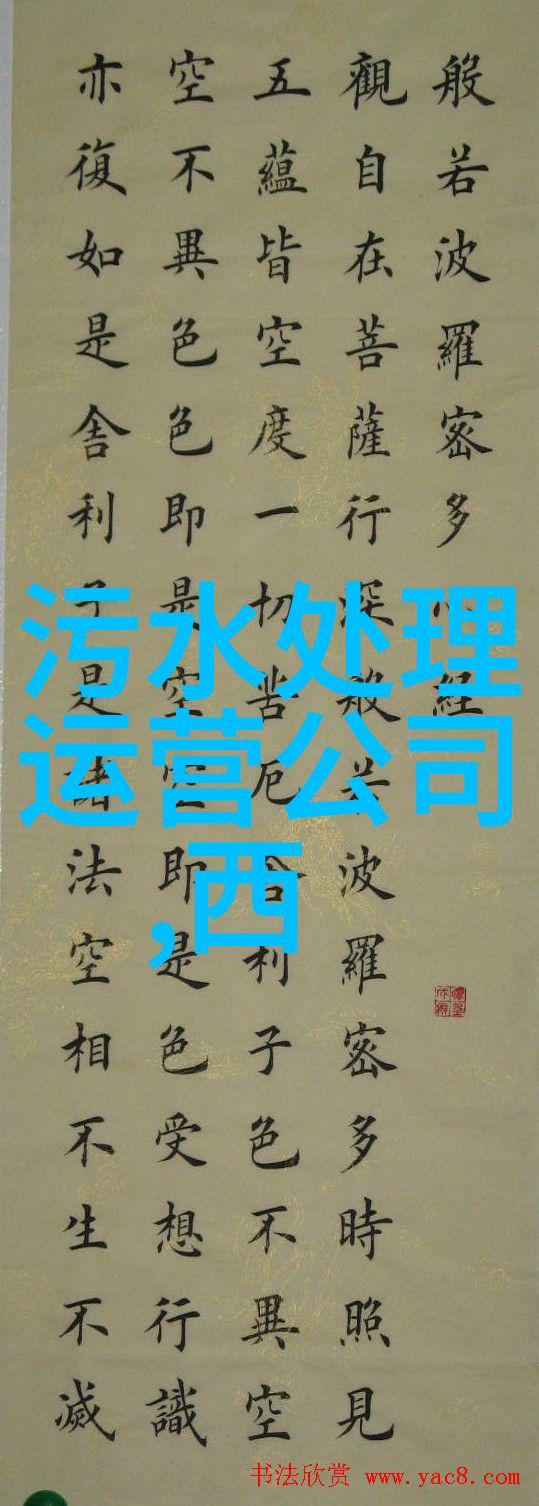 般若波羅密多心經
觀自在菩薩行深般若波羅密多時照見
五蘊皆空度一切苦厄舍利子色不異空
空不異色色即是空空即是色受想行識
亦復如是舍利子是諸法空相不生不滅
污水处理
运营公司
,西
书法欣赏 www.yac8.com